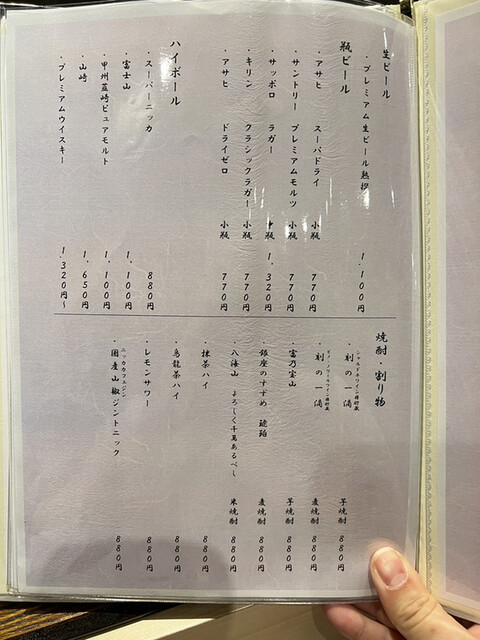 生ビール
・プレミアム生ビール熟撰 1,100円
瓶ビール
・アサヒ スーパドライ 小瓶 770円
・サントリー プレミアムモルツ 小瓶 770円
・サッポロ ラガー 中瓶 1,320円
・キリン クラシックラガー 小瓶 770円
・アサヒ ドライゼロ 小瓶 770円
ハイボール
・スーパーニッカ 880円
・富士山 1,100円
・甲州韮崎ピュアモルト 1,100円
・山崎 1,650円
・プレミアムウイスキー 1,320円〜
焼酎・割り物
シャルドネワイン樽貯蔵
・刻の一滴 芋焼酎 880円
ピノ・ノワールワイン樽貯蔵
・刻の一滴 麦焼酎 880円
・富乃宝山 芋焼酎 880円
・銀座のすずめ 琥珀 麦焼酎 880円
・八海山 よろしく千萬あるべし 米焼酎 880円
・抹茶ハイ 880円
・烏龍茶ハイ 880円
・レモンサワー 880円
・国産山椒ジントニック 880円